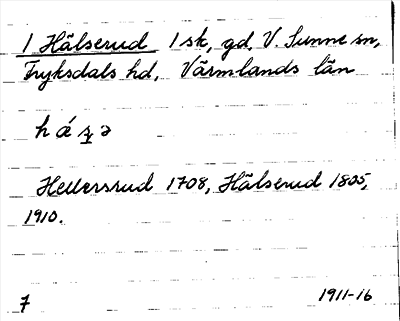 1 Hälserud 1 sk, gd, V. Sunne sn,
Fryksdals hd, Värmlands län
h ǽ s̱ ə
Hellersrud 1708, Hälserud 1805,
1910.
7 1911-16